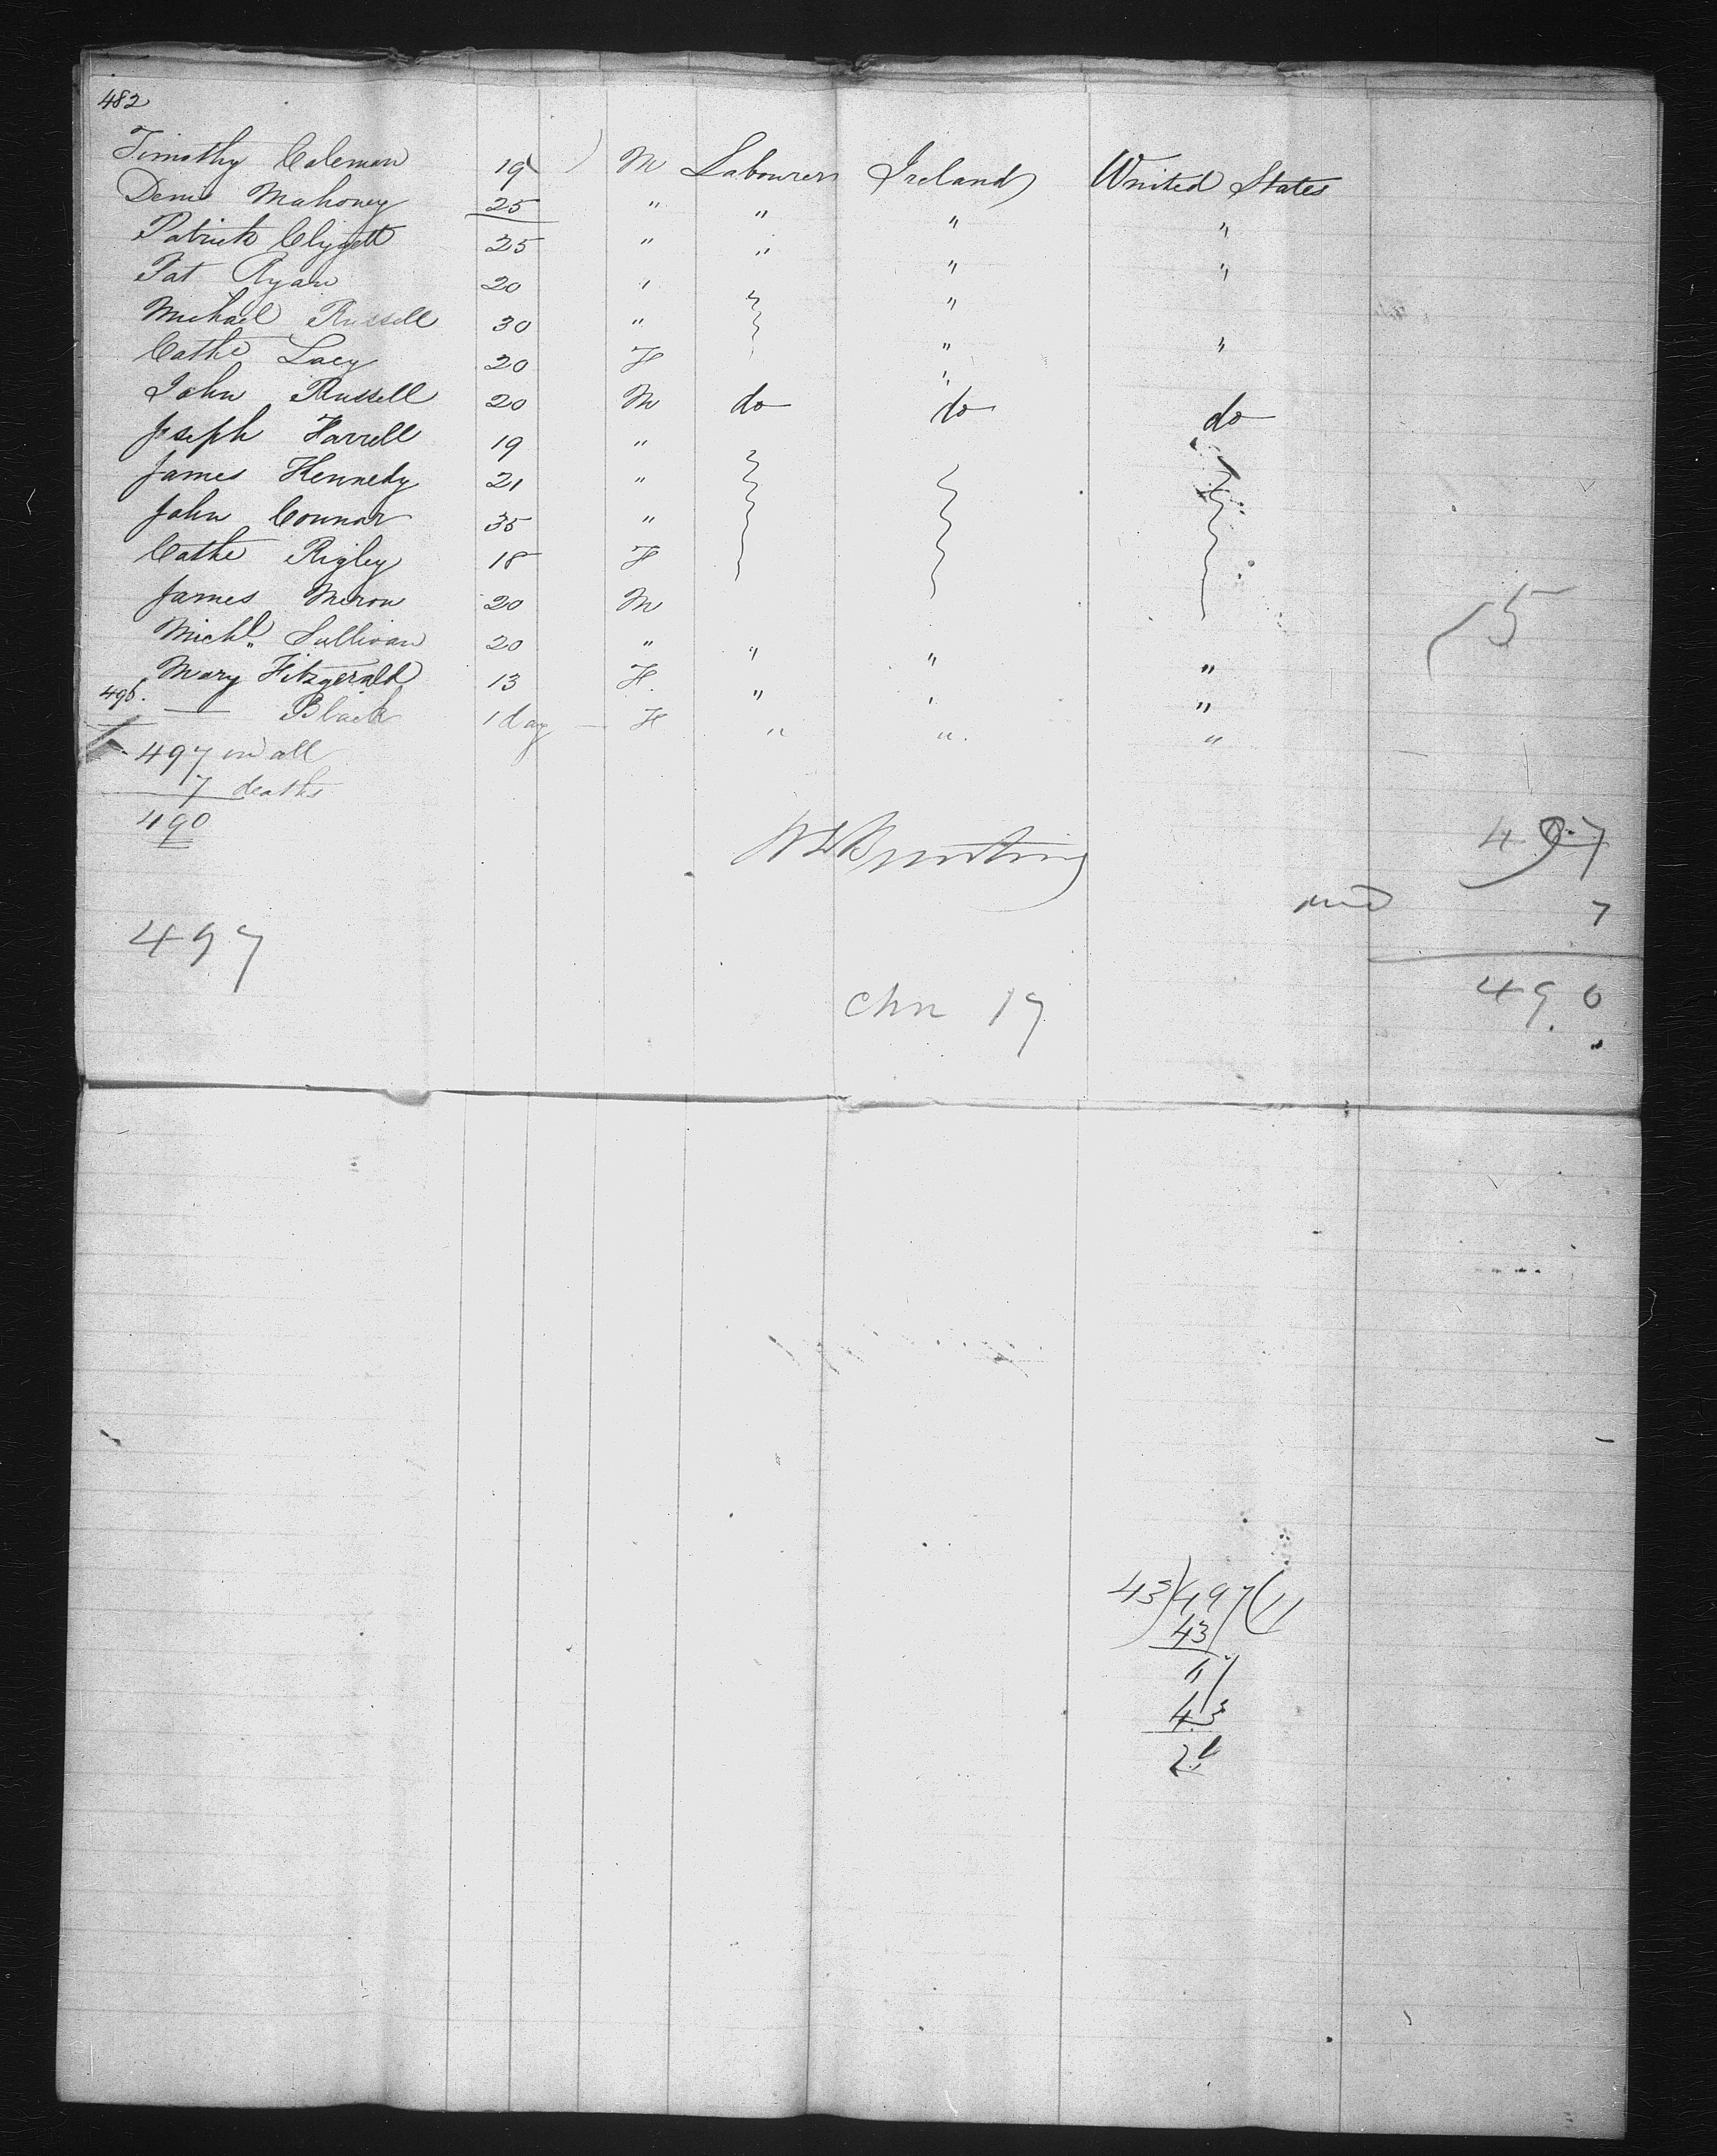 482
Timothy Coleman 19 M Labourers Ireland United States
Denis Mahoney 25 " " " "
Patrick Clyggett 25 " " " "
Pat Ryan 20 " "
Michael Russell 30 " " "
Cathe Lacy 20 F "
John Russell 20 M do do do
Joseph Farrell 19 "
James Kennedy 21 "
John Connor 35 "
Cathe Rigley 18 F
James Meron 20 M
Michl. Sullivan 20 " " " "
Mary Fitzgerald 13 F. " " "
496. — Black 1 day — F " " "
497 in all
7 deaths
490
15
497
7
490
497
chn 17
43)497(11
43
67
43
24